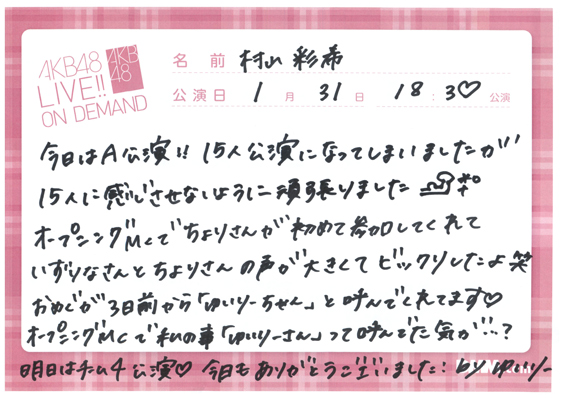 AKB48
LIVE!!
ON DEMAND
AKB
48
名 前 村山 彩希
公演日 1 月 31 日 18:30♡ 公演
今日はA公演!! 15人公演になってしまいましたが
15人に感じさせないように頑張りました
オープニングMCでちよりさんが初めて参加してくれて
いずりなさんとちよりさんの声が大きくてビックリしたよ笑
おめぐが3日前から「ゆいりーちゃん」と呼んでくれてます♡
オープニングMCで私の事「ゆいりーさん」って呼んでた気が…?
明日はチーム4公演♡ 今日もありがとうございました! by ゆいりー